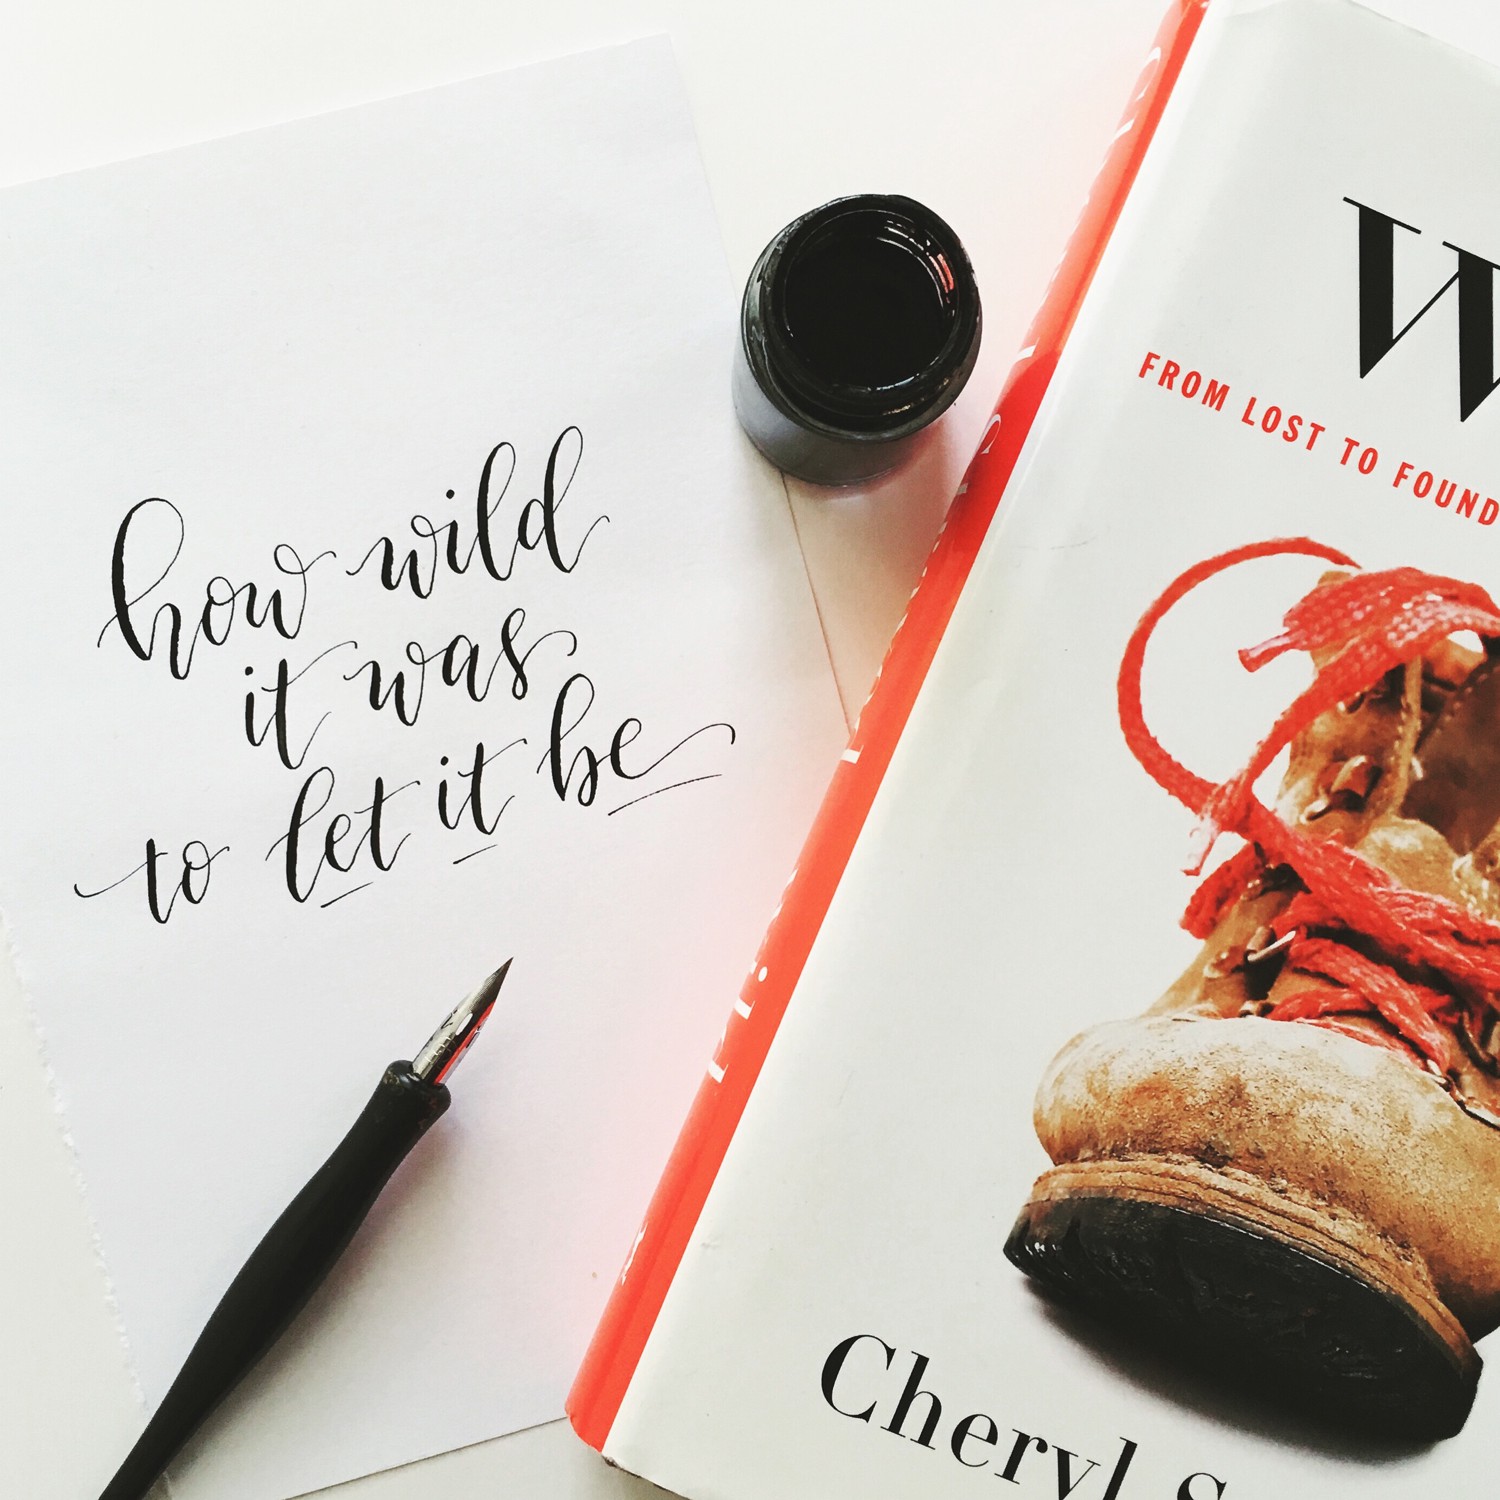 how wild
it was
to let it be
W
FROM LOST TO FOUND
Cheryl S